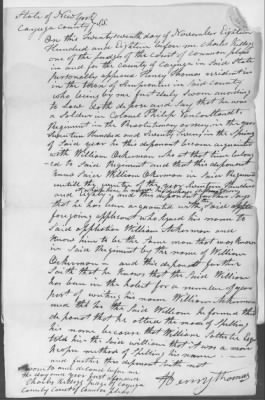 State of New York
Cayuga County } SS.
On this Twenty sixth day of November Eighteen
Hundred and Eighteen before me Charles Kellogg
one of the Judges of the Court of common pleas
in and for the County of Cayuga in said State
personally appears Henry Thomas resident in
in the Town of Sempronius in said County
who being by me first duly Sworn according
to Law doth depose and Say that he was
a Soldier in Colonel Philip Van Cortlandts
Regiment in the Revolutionary army in the year
Seventeen Hundred and Seventy Seven in the Spring
of Said year he this deponent became acquainted
with William Ackerman who at that time belong-
ed to Said Regiment and that this deponent
knew Said William Ackerman in Said Regiment
untill the year Seventeen Hundred
and Eighty and this deponent further
that he has been acquainted with the Said
foregoing applicant who signed his name to
Said application William Ackerman and
knows him to be the Same man that was known
in Said Regiment by the name of William
Ackerman and this deponent further
Saith that he knows that the Said William
has been in the habit for a number of years
past of writing his name William Ackerman
and that he the Said William he informed this
deponent that he altered the mode of Spelling
his name because that William Esq
told him the Said William that it was a more
proper method of Spelling his name
and further this deponent Saith not
Sworn to and Subscribed before me
the day and year first aforesaid
Charles Kellogg Judge of Cayuga
County Court of Common pleas
Henry Thomas